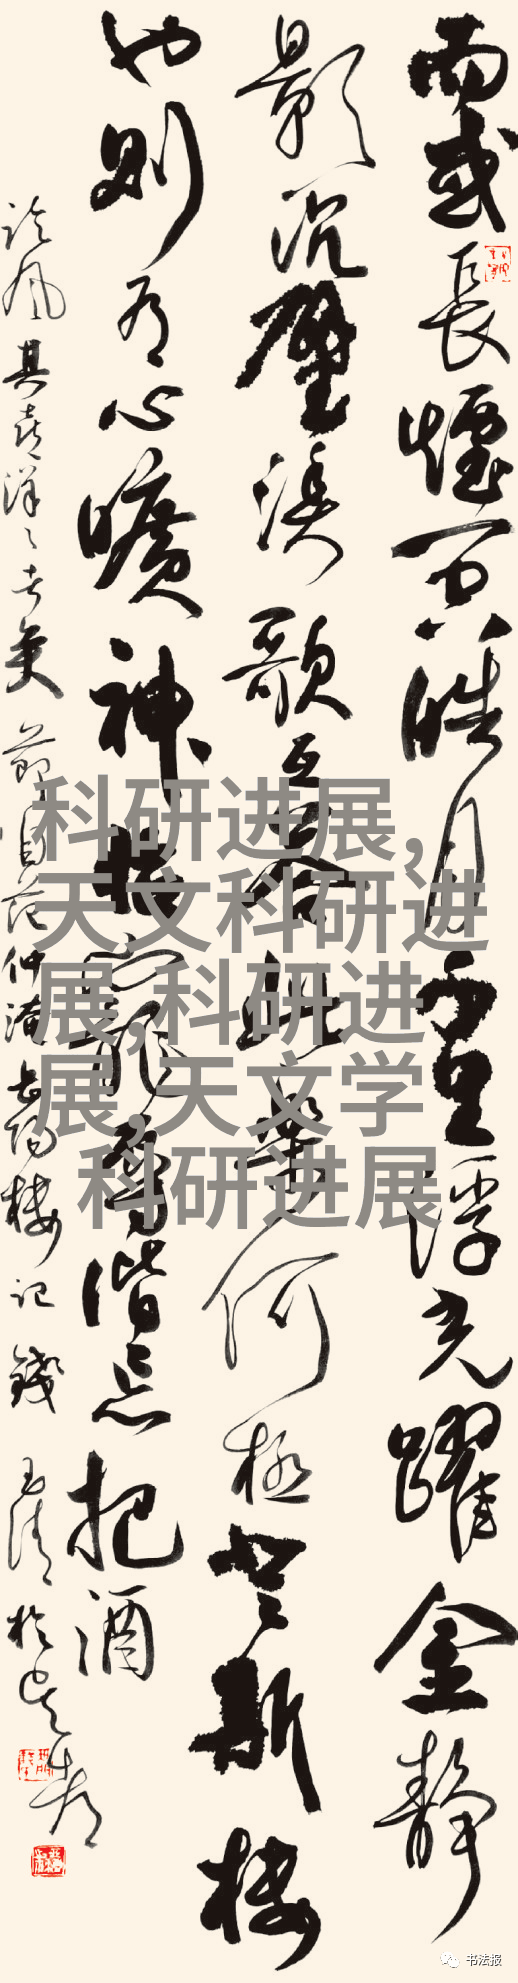 而或長煙一空皓月千里浮光躍金靜
影沉璧漁歌互答此樂何極登斯樓
也則有心曠神怡寵辱偕忘把酒
臨風其喜洋々者矣 節自范仲淹岳陽樓記 錢玉清於
科研进展,
天文科研进
展,科研进
展,天文学
科研进展
书法报